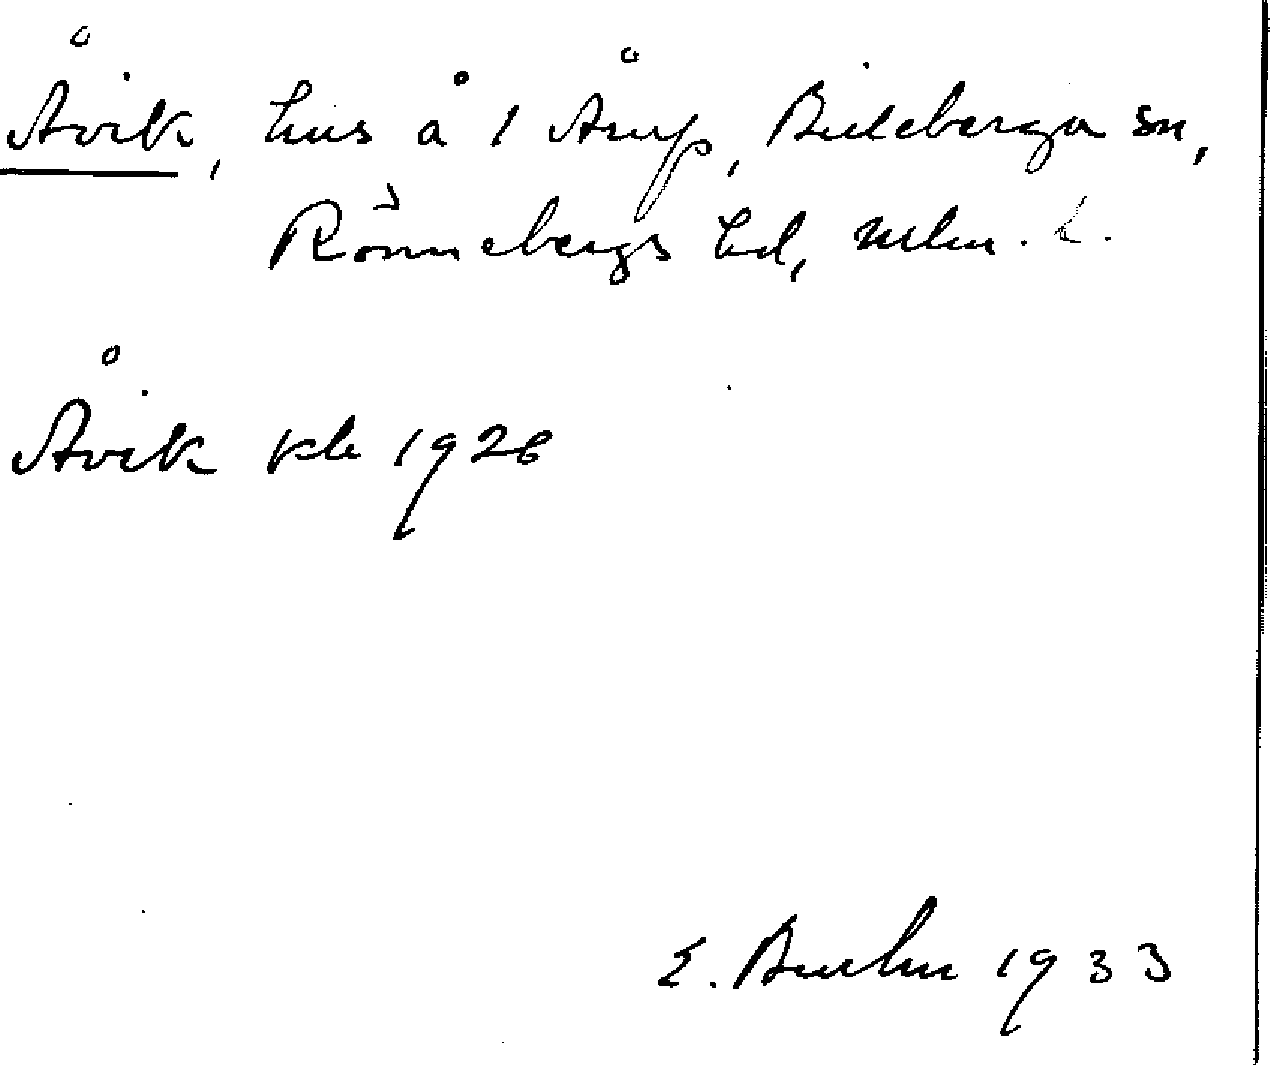 Åvik, hus å 1 Årup, Billeberga sn,
Rönnebergs hd, Mlm. L.
Åvik kb 1926
E. 1933